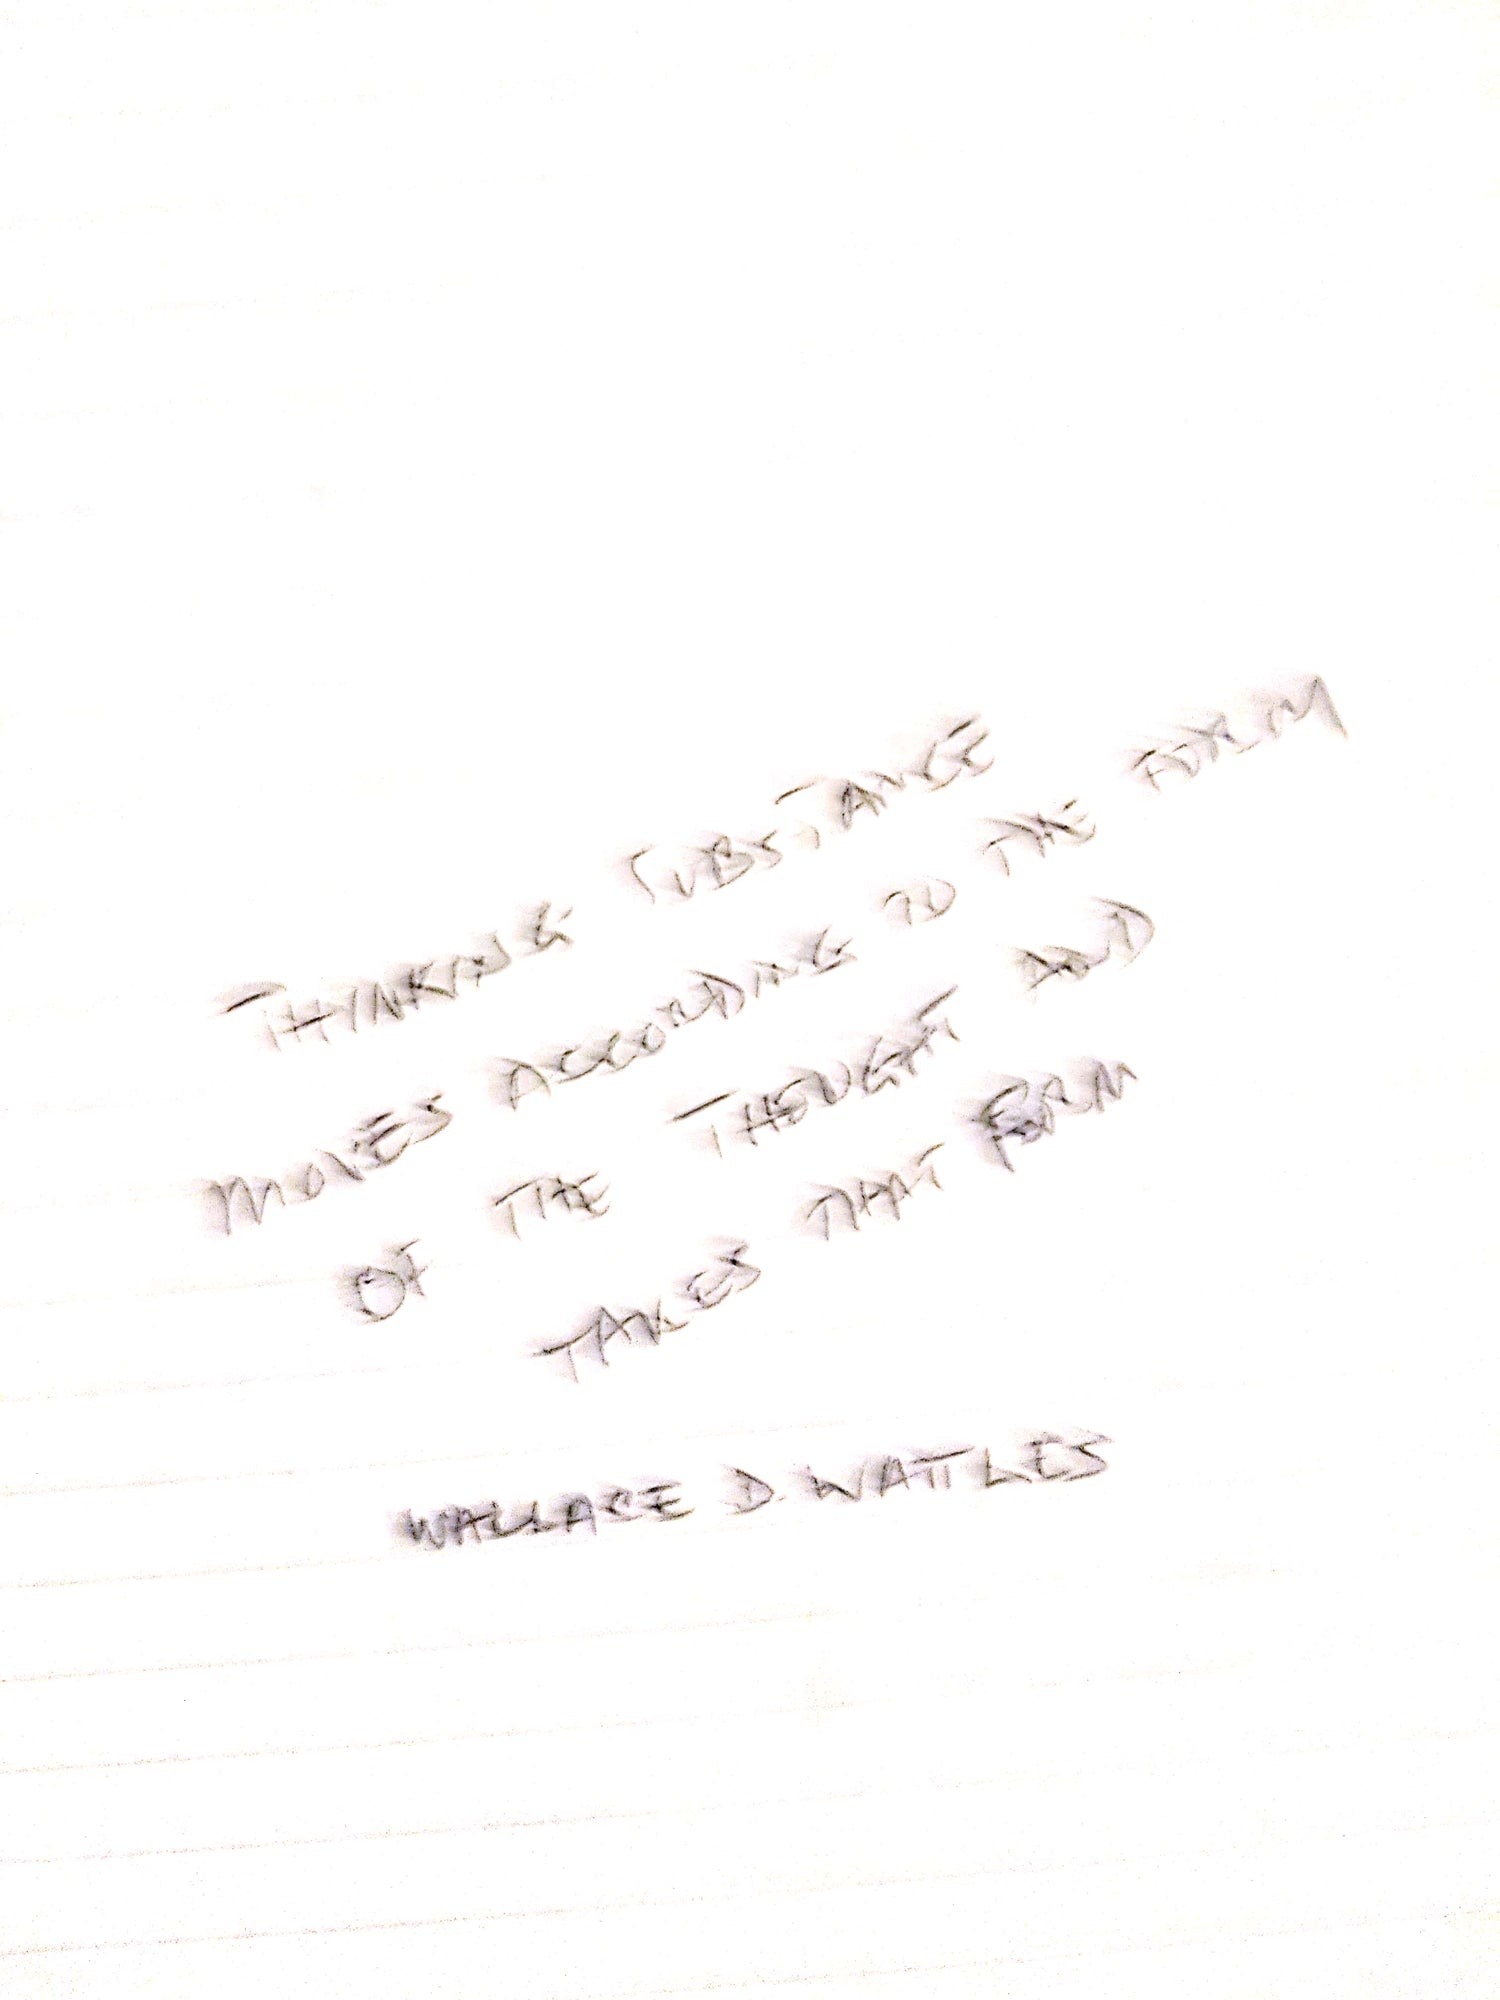 THINKING SUBSTANCE
MOVES ACCORDING TO THE FORM
OF THE THOUGHT AND
TAKES THAT FORM
WALLACE D. WATTLES